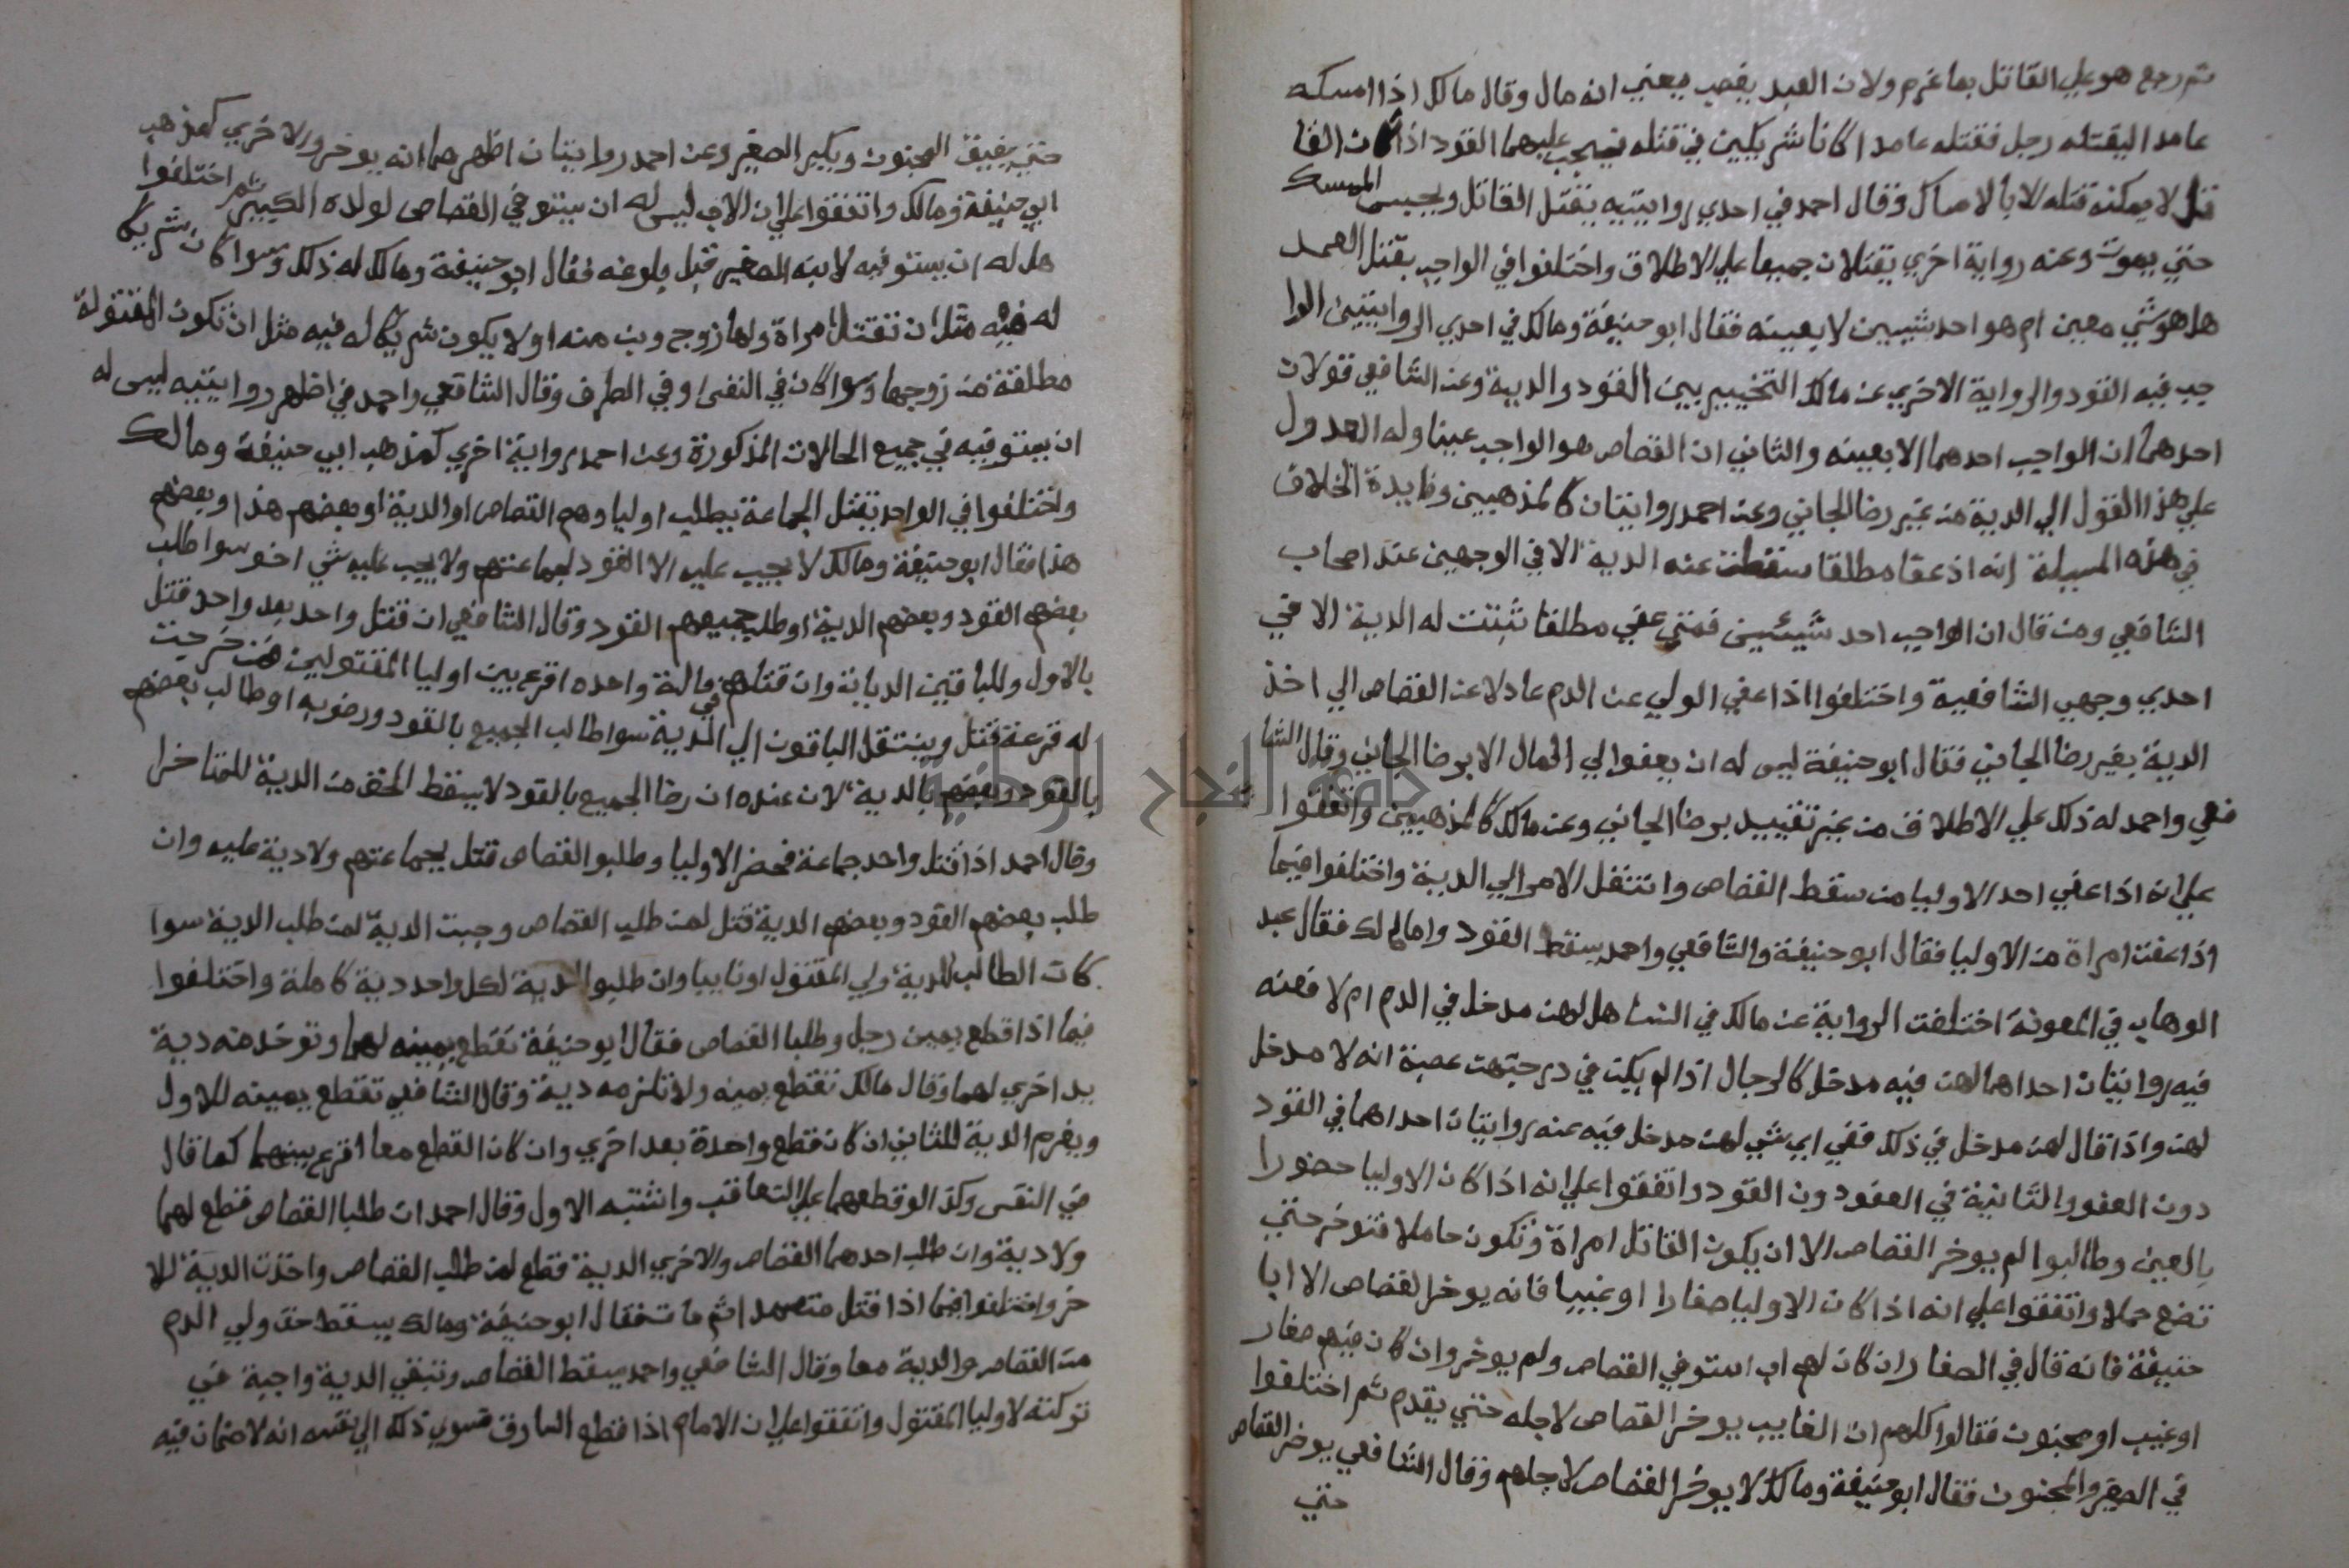 ثم رجع هو علي القاتل بما غرم ولان العبد يغصب يعني انه مال وقال مالك اذا امسكه
عامدا ليقتله رجل فقتله عامدا كانا شريكين في قتله فيجب عليهما القود اذا كان القا
تل لا يمكنه قتله الا بالامساك وقال احمد في احدي روايتيه يقتل القاتل ويحبس الممسك
حتي يموت وعنه رواية اخري يقتلان جميعا علي الاطلاق واختلفوا في الواجب بقتل العمد
هل هو شي معين ام هو احد شييين لا بعينه فقال ابو حنيفة ومالك في احدي الروايتين الوا
جب فيه القود والرواية الاخري عن مالك التخيير بين القود والدية وعن الشافعي قولان
احدهما ان الواجب احدهما لا بعينه والثاني ان القصاص هو الواجب عينا وله العدول
علي هذا القول الي الدية من غير رضا الجاني وعن احمد روايتان كالمذهبين وفايدة الخلاف
في هذه المسيلة انه اذ عفا مطلقا سقطت عنه الدية الا في الوجهين عند اصحاب
الشافعي ومن قال ان الواجب احد شيئين فمتي عفي مطلقا ثبتت له الدية الا في
احدي وجهي الشافعية واختلفوا اذا عفي الولي عن الدم عادلا عن القصاص الي اخذ
الدية بغير رضا الجاني فقال ابو حنيفة ليس له ان يعفوا لي المال الا برضا الجاني وقال الشا
فعي واحمد له ذلك علي الاطلاق من غير تقييد برضا الجاني وعن مالك كالمذهبين واتفقوا
علي انه اذا عفي احد الاوليا من سقط القصاص وانتقل الامر الي الدية واختلفوا فيما
اذا عفت امراة من الاوليا فقال ابو حنيفة والشافعي واحمد يسقط القود واما مالك فقال عبد
الوهاب في المعونة اختلفت الرواية عن مالك في النسا هل لهن مدخل في الدم ام لا فعنه
فيه روايتان احداهما لهن فيه مدخل كالرجال اذا لم يكن في درجتهن عصبة انه لا مدخل
لهن واذا قال لهن مدخل في ذلك ففي اي شي لهن مدخل فيه عنه روايتان احداهما في القود
دون العفو والثانية في العفو دون القود واتفقوا علي انه اذا كان الاوليا حضورا
بالعين وطالبوا لم يوخر القصاص الا ان يكون القاتل امراة وتكون حاملا فتوخر حتي
تضع حملا واتفقوا علي انه اذا كان الاوليا صغارا او غيبا فانه يوخر القصاص الا ابا
حنيفة فانه قال في الصغار ان كان لهم اب استوفي القصاص ولم يوخر وان كان فيهم صغار
او غيب او مجنون فقالوا كلهم ان الغايب يوخر القصاص لاجله حتي يقدم ثم اختلفوا
في الصغير والمجنون فقال ابو حنيفة ومالك لا يوخر القصاص لاجلهم وقال الشافعي يوخر القصاص
حتي
حتي يفيق المجنون ويكبر الصغير وعن احمد روايتان اظهرهما انه يوخر والاخري كمذهب
ابي حنيفة ومالك واتفقوا علي ان الاب ليس له ان يستوفي القصاص لولده الكبير ثم اختلفوا
هل له ان يستوفيه لابنه الصغير قبل بلوغه فقال ابو حنيفة ومالك له ذلك وسوا كان شريكا
له فيه مثل ان تقتل امراة ولها زوج وبن منه او لا يكون شريكا له فيه مثل ان تكون المقتولة
مطلقة من زوجها وسوا كان في النفس او في الطرف وقال الشافعي واحمد في اظهر روايتيه ليس له
ان يستوفيه في جميع الحالات المذكورة وعن احمد رواية اخري كمذهب ابي حنيفة ومالك
واختلفوا في الواحد يقتل الجماعة فيطلب اولياوهم القصاص او الدية او بعضهم هذا وبعضهم
هذا فقال ابو حنيفة ومالك لا يجب عليه الا القود لجماعتهم ولا يجب عليه شي اخر سوا طلب
بعضهم القود وبعضهم الدية او طلب جميعهم القود وقال الشافعي ان قتل واحد بعد واحد قتل
بالاول وللباقين الديات وان قتلهم في حالة واحده اقرع بين اوليا المقتولين فمن خرجت
له قرعة قتل وينتقل الباقون الي الدية سوا طالب الجميع بالقود ورضوبه او طالب بعضهم
بالقود وبعضهم بالدية لان عنده ان رضا الجميع بالقود لا يسقط الحق من الدية للمتاخر
وقال احمد اذا قتل واحد جماعة فحضر الاوليا وطلبو القصاص قتل بجماعتهم ولا دية عليه وان
طلب بعضهم القود وبعضهم الدية قتل لمن طلب القصاص وجبت الدية لمن طلب الدية سوا
كان الطالب للدية ولي المقتول او نايبا وان طلبو الدية لكل واحد دية كاملة واختلفوا
فيما اذا قطع يمين رجل وطلبا القصاص فقال ابو حنيفة تقطع يمينه لهما وتوخذ منه دية
يد اخري لهما وقال مالك تقطع يمينه ولا تلزمه دية وقال الشافعي تقطع يمينه للاول
ويغرم الدية للثاني ان كان قطع واحدة بعد اخري وان كان القطع معا اقرع بينهما كما قال
في النفس وكذا لو قطعهما علي التعاقب واشتبه الاول وقال احمد ان طلبا القصاص قطع لهما
ولا دية وان طلب احدهما القصاص والاخري الدية قطع لمن طلب القصاص واخذت الدية للا
خر واختلفوا فيما اذا قتل متعمدا ثم مات فقال ابو حنيفة ومالك يسقط حق ولي الدم
من القصاص والدية معا وقال الشافعي واحمد يسقط القصاص وتبقي الدية واجبة في
تركته لاوليا المقتول واتفقوا علي ان الامام اذا قطع السارق فسري ذلك الي نفسه انه لا ضمان فيه
جامعة النجاح الوطنية